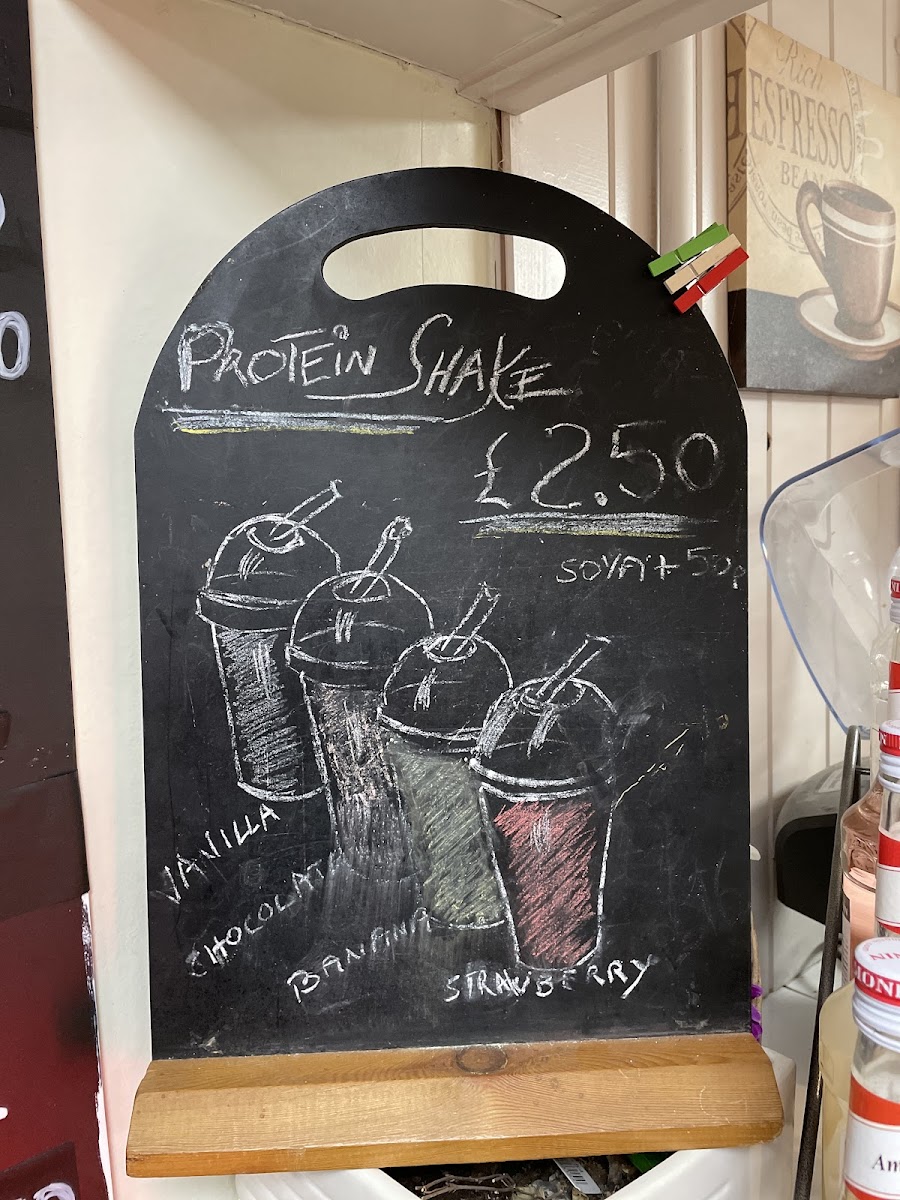 PROTEiN SHAKE
£2.50
SOYA + 50p
VANILLA
CHOCOLAT
BANANA
STRAWBERRY
Rich
ESPRESSO
BEAN
0
NIN
IONI
Am